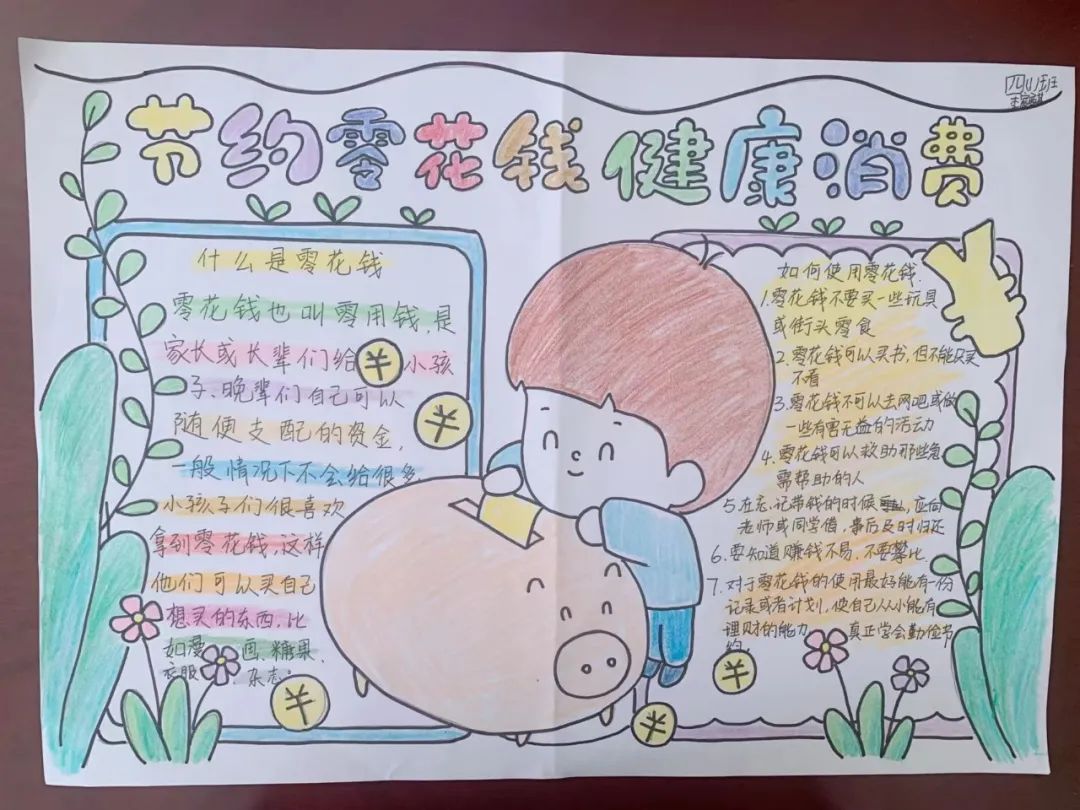 四(1)班
节约零花钱 健康消费
什么是零花钱
零花钱也叫零用钱,是
家长或长辈们给小孩
子、晚辈们自己可以
随便支配的资金,
一般情况下不会给很多
小孩子们很喜欢
拿到零花钱,这样
他们可以买自己
想买的东西,比
如漫画、糖果、
衣服、杂志。
如何使用零花钱
1.零花钱不要买一些玩具
或街头零食
2.零花钱可以买书,但不能只买
不看
3.零花钱不可以去网吧或做
一些有害无益的活动
4.零花钱可以救助那些急
需帮助的人
5.在忘记带钱的时候,应向
老师或同学借,事后及时归还
6.要知道赚钱不易,不要攀比
7.对于零花钱的使用最好能有一份
记录或者计划,使自己从小能有
理财的能力 真正学会勤俭节
约。